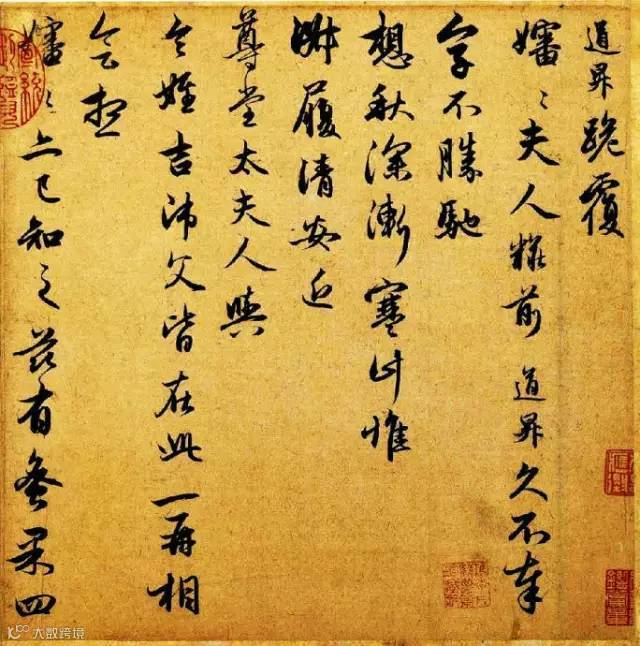 道昇跪覆
嬸〻夫人粧前道昇久不奉
字不勝馳
想秋深漸寒計惟
淑履清安近
尊堂太夫人與
令姪吉師父皆在此一再相
會想
嬸〻亦已知之茲有蜜果四
大数跨境